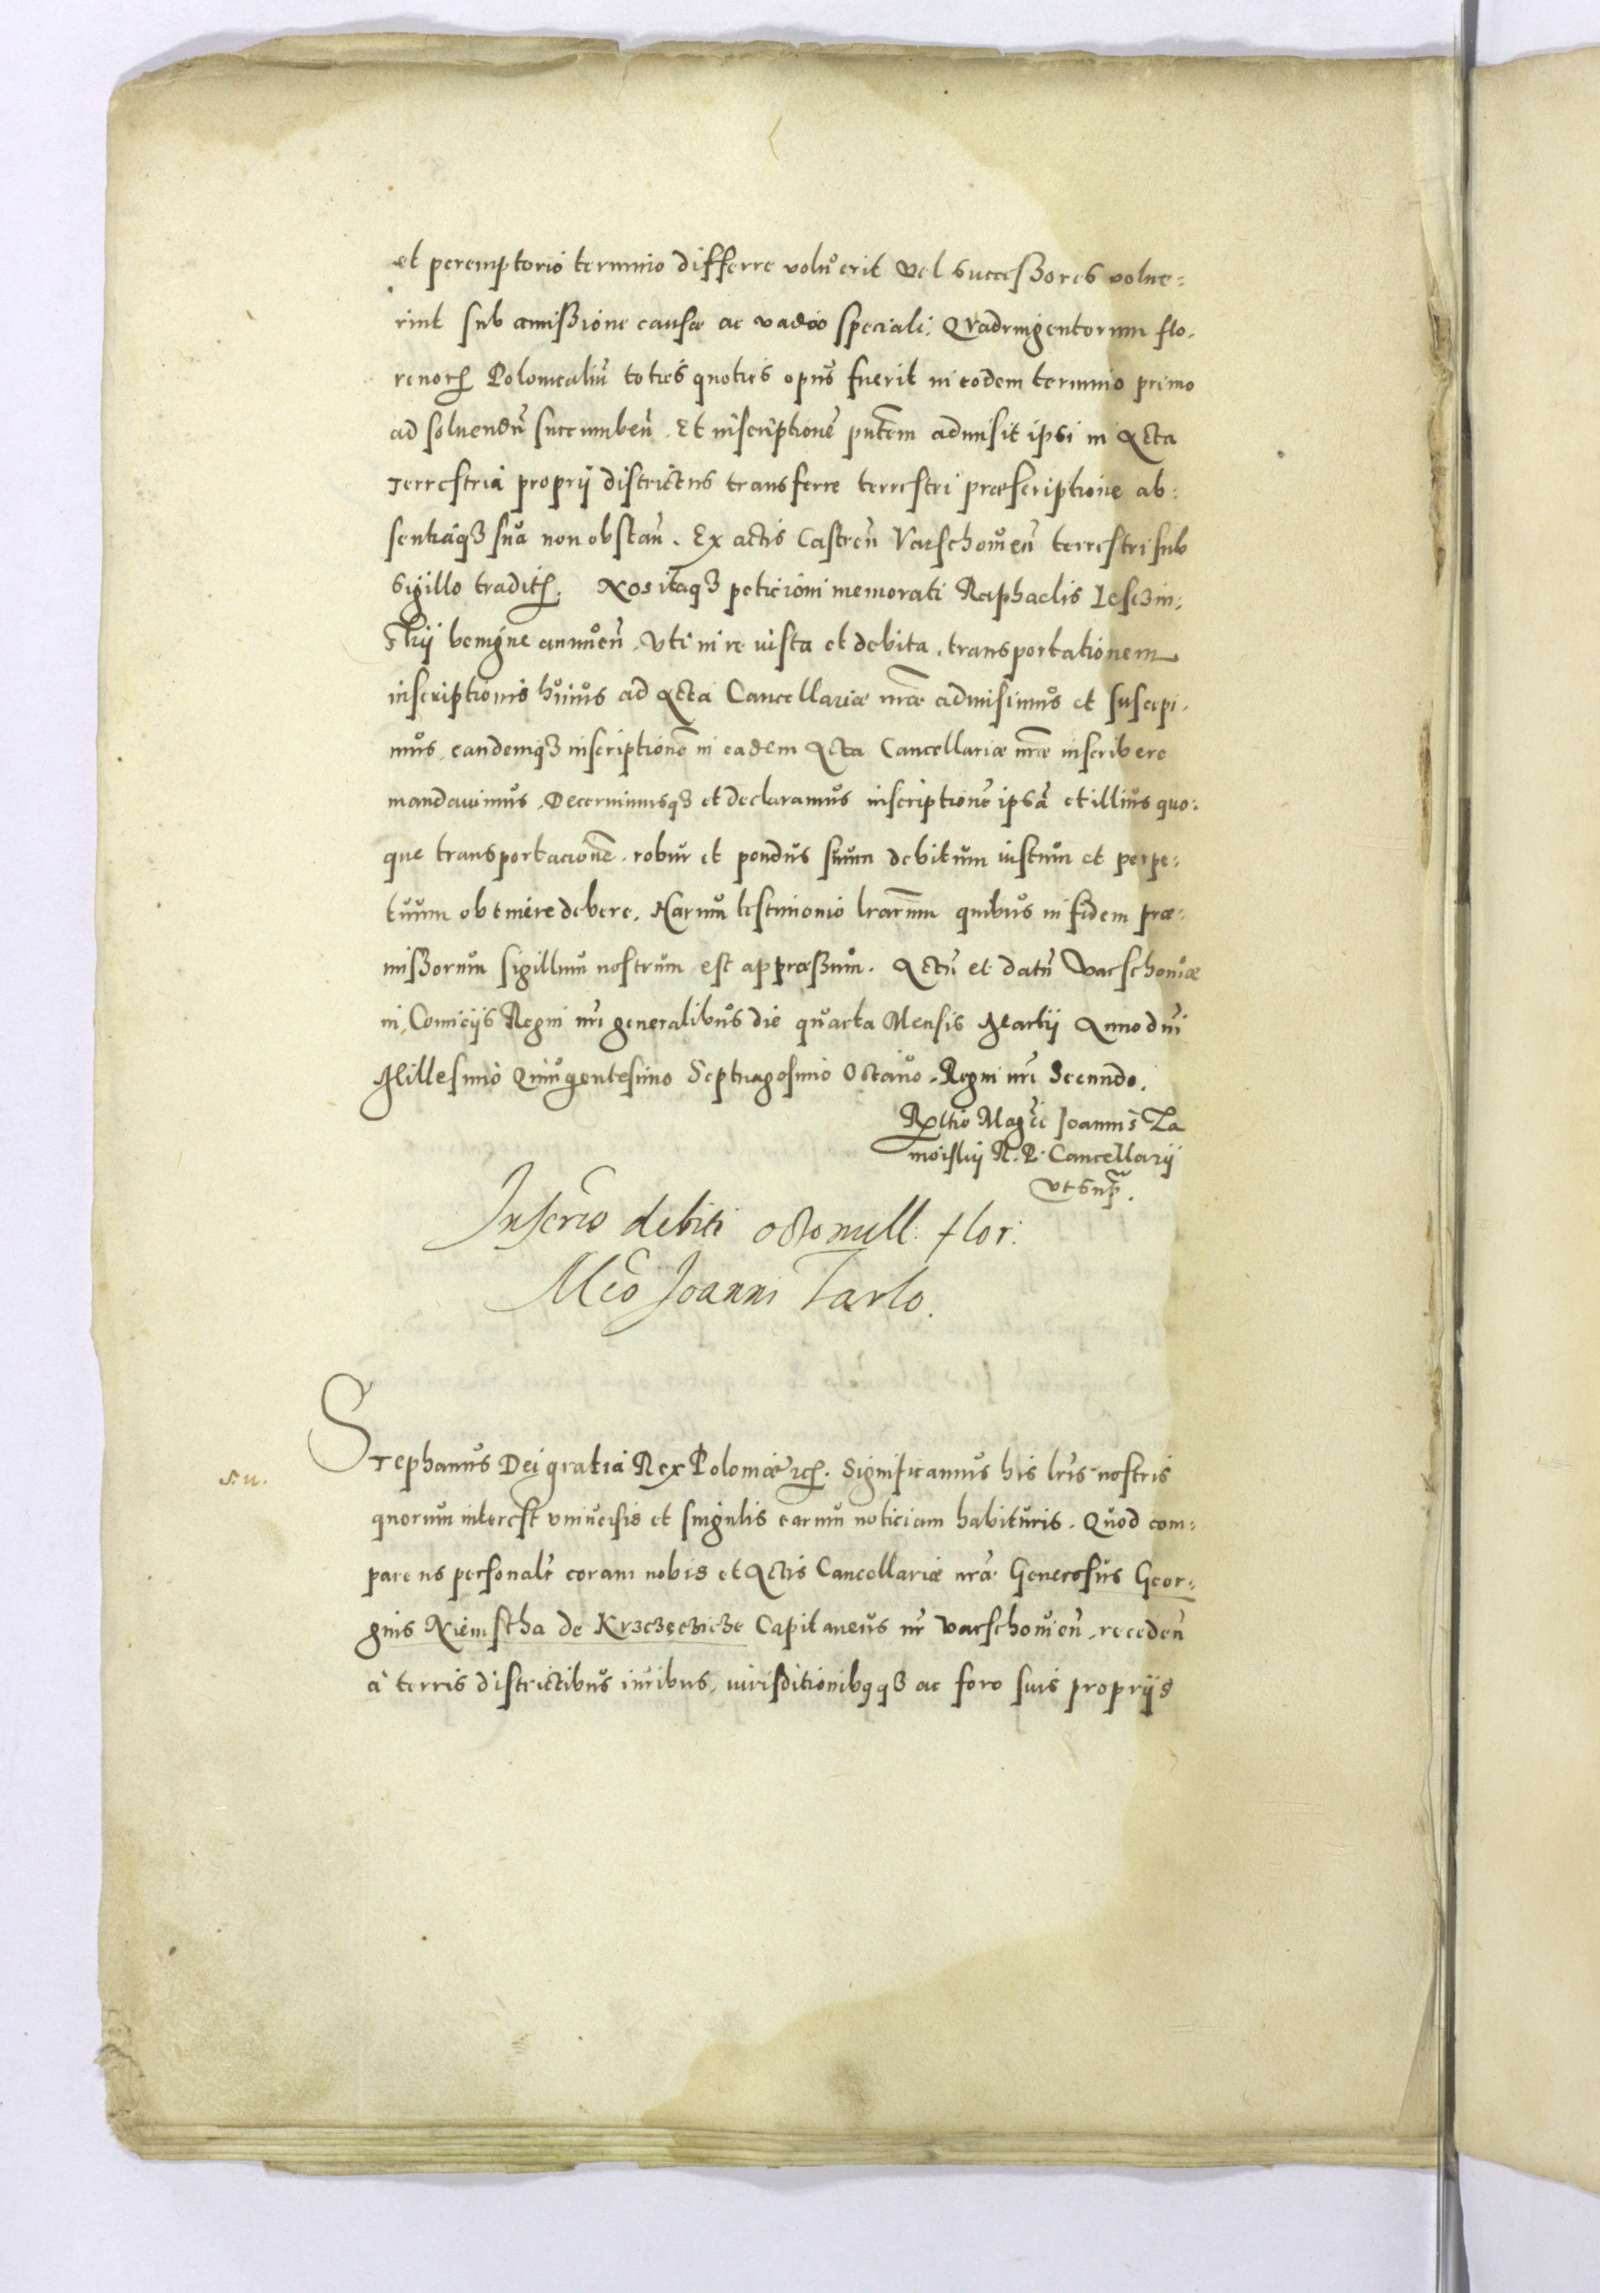 et peremptorio termino differre voluerit vel successores volue-
rint sub amissione causæ ac vadio speciali Quadringentorum flo-
renorum Polonicaliũ toties quoties opus fuerit in eodem termino primo
ad soluendũ succumbeñ. Et inscriptionẽ pñtem admisit ipsi in Acta
Terrestria proprij districtus transferre terrestri præscriptione ab-
sentiaq3 sua non obstañ. Ex actis Castreñ Varschouieñ terrestri sub
sigillo tradit. Nos itaq3 peticioni memorati Raphaelis Leszin-
skij benigne annueñ. Vti in re iusta et debita, transportationem
inscriptionis huius ad Acta Cancellariæ nræ admisimus et suscepi-
mus, eandemq3 inscriptionẽ in eadem Acta Cancellariæ nræ inscribere
mandauimus. Decernimusq3 et declaramus inscriptionẽ ipsã et illius quo-
que transportacionẽ, robur et pondus suum debitum iustum et perpe-
tuum obtinere debere. Harum testimonio lrarum quibus in fidem præ-
missorum sigillum nostrum est appressum. Actũ et datũ Varschouiæ
in Comicijs Regni nri generalibus die quarta Mensis Martij Anno dni
Millesimo Quingentesimo Septuagesimo Octauo. Regni nri Secundo.
Rltio Magci Joannis Za
moiskij R. P. Cancellarij
vt supr.
Inscrio debiti octo mill: flor:
Mco Joanni Tarlo.
s. u.
Stephanus Dei gratia Rex Poloniæ etc. Significamus his lris nostris
quorum interest vniuersis et singulis earum noticiam habituris. Quod com-
parens personalr coram nobis et Actis Cancellariæ nræ Generosus Geor-
gius Niemstha de Krzczęczicze Capitaneus nr Varschouieñ, recedeñ
à terris districtibus iuribus, iurisditionibusq3 ac foro suis proprijs